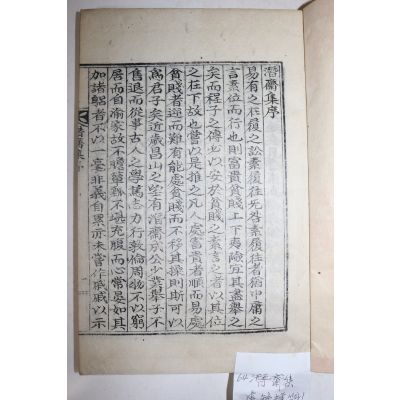 潛齋集序
易有之在履之訟素履往无咎素履往者猶中庸之
言素位而行也則富貴貧賤上下夷險宜其盡擧之
矣而程子之傳必以安於貧賤之素言之者以其位
之在下故也嘗以是推之凡人處富貴者順而易處
貧賤者逆而難有能處貧賤而不移其操則斯可以
爲君子矣近歲昌山之望有潛齋成公少業擧子不
售退而從事古人之學篤志力行敦倫周物不以窮
居而自渝家故不贍簞瓢不能充腹而心常晏如其
加諸躬者不以一毫非義自累亦未嘗作戚戚以示
潛齋集